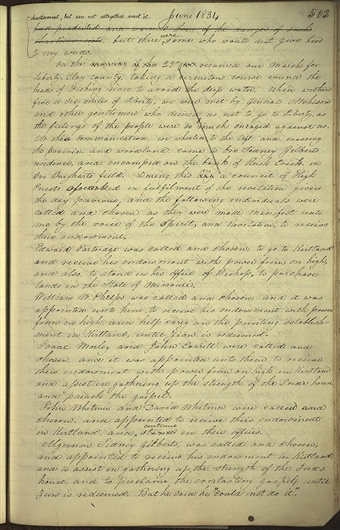 June 1834
503
but there were some who would not give heed
to my words.
On the morning of the 23rd we resumed our march for
Liberty, Clay county, taking a circuitous course round the
heads of Fishing river to avoid the deep water. When within
five or six miles of Liberty, we were met by General Atchison
and other gentlemen who desired us not to go to Liberty, as
the feelings of the people were so much enraged against us.
At their communication we wheeled to the left and crossing
the prairie and woodland came to bro Sidney Gilberts
residence, and encamped on the bank of Rush Creek, in
Bro Burkharts field. During this day a council of High
Priests assembled in fulfilment of the revelation given
the day previous, and the following individuals were
called and chosen as they were made manifest unto
me by the voice of the Spirit, and Revelation, to receive
their endowment.
Edward Partridge was called and chosen, to go to Kirtland
and receive his endowment with power from on high,
and also, to stand in his office of Bishop, to purchase
lands in the State of Missouri.
William W. Phelps was called and chosen, and it was
appointed unto him to receive his endowment with power
from on high, and help carry on the printing establish-
ment in Kirtland, until Zion is redeemed.
Isaac Morley and John Corrill were called and
chosen, and it was appointed unto them to receive
their endowment with power from on high in Kirtland
and assist in gathering up the strength of the Lords house
and preach the gospel.
John Whitmer and David Whitmer were called and
chosen, and appointed to receive their endowment
in Kirtland, and continue in their offices.
Algernon Sidney Gilbert, was called and chosen,
and appointed to receive his endowment in Kirtland
and to assist in gathering up the strength of the Lords
house, and to proclaim the everlasting gospel until
Zion is redeemed. But he said he "could not do it".